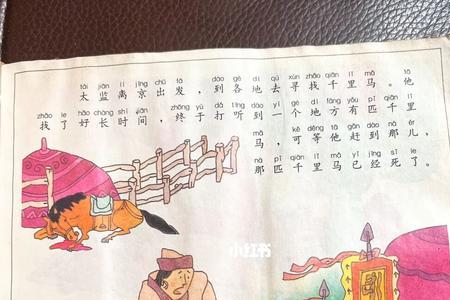 tài jiān lí jīng chū fā dào gè dì qù xún zhǎo qiān lǐ mǎ tā
太监离京出发，到各地去寻找千里马。他
zhǎo le hǎo cháng shí jiān zhōng yú dǎ tīng dào yī gè dì fāng yǒu pǐ qiān lǐ
找了好长时间，终于打听到一个地方有匹千里
mǎ kě děng tā gǎn dào nà ér
马，可等他赶到那儿，
nà pǐ qiān lǐ mǎ yǐ jīng sǐ le
那匹千里马已经死了。
小红书